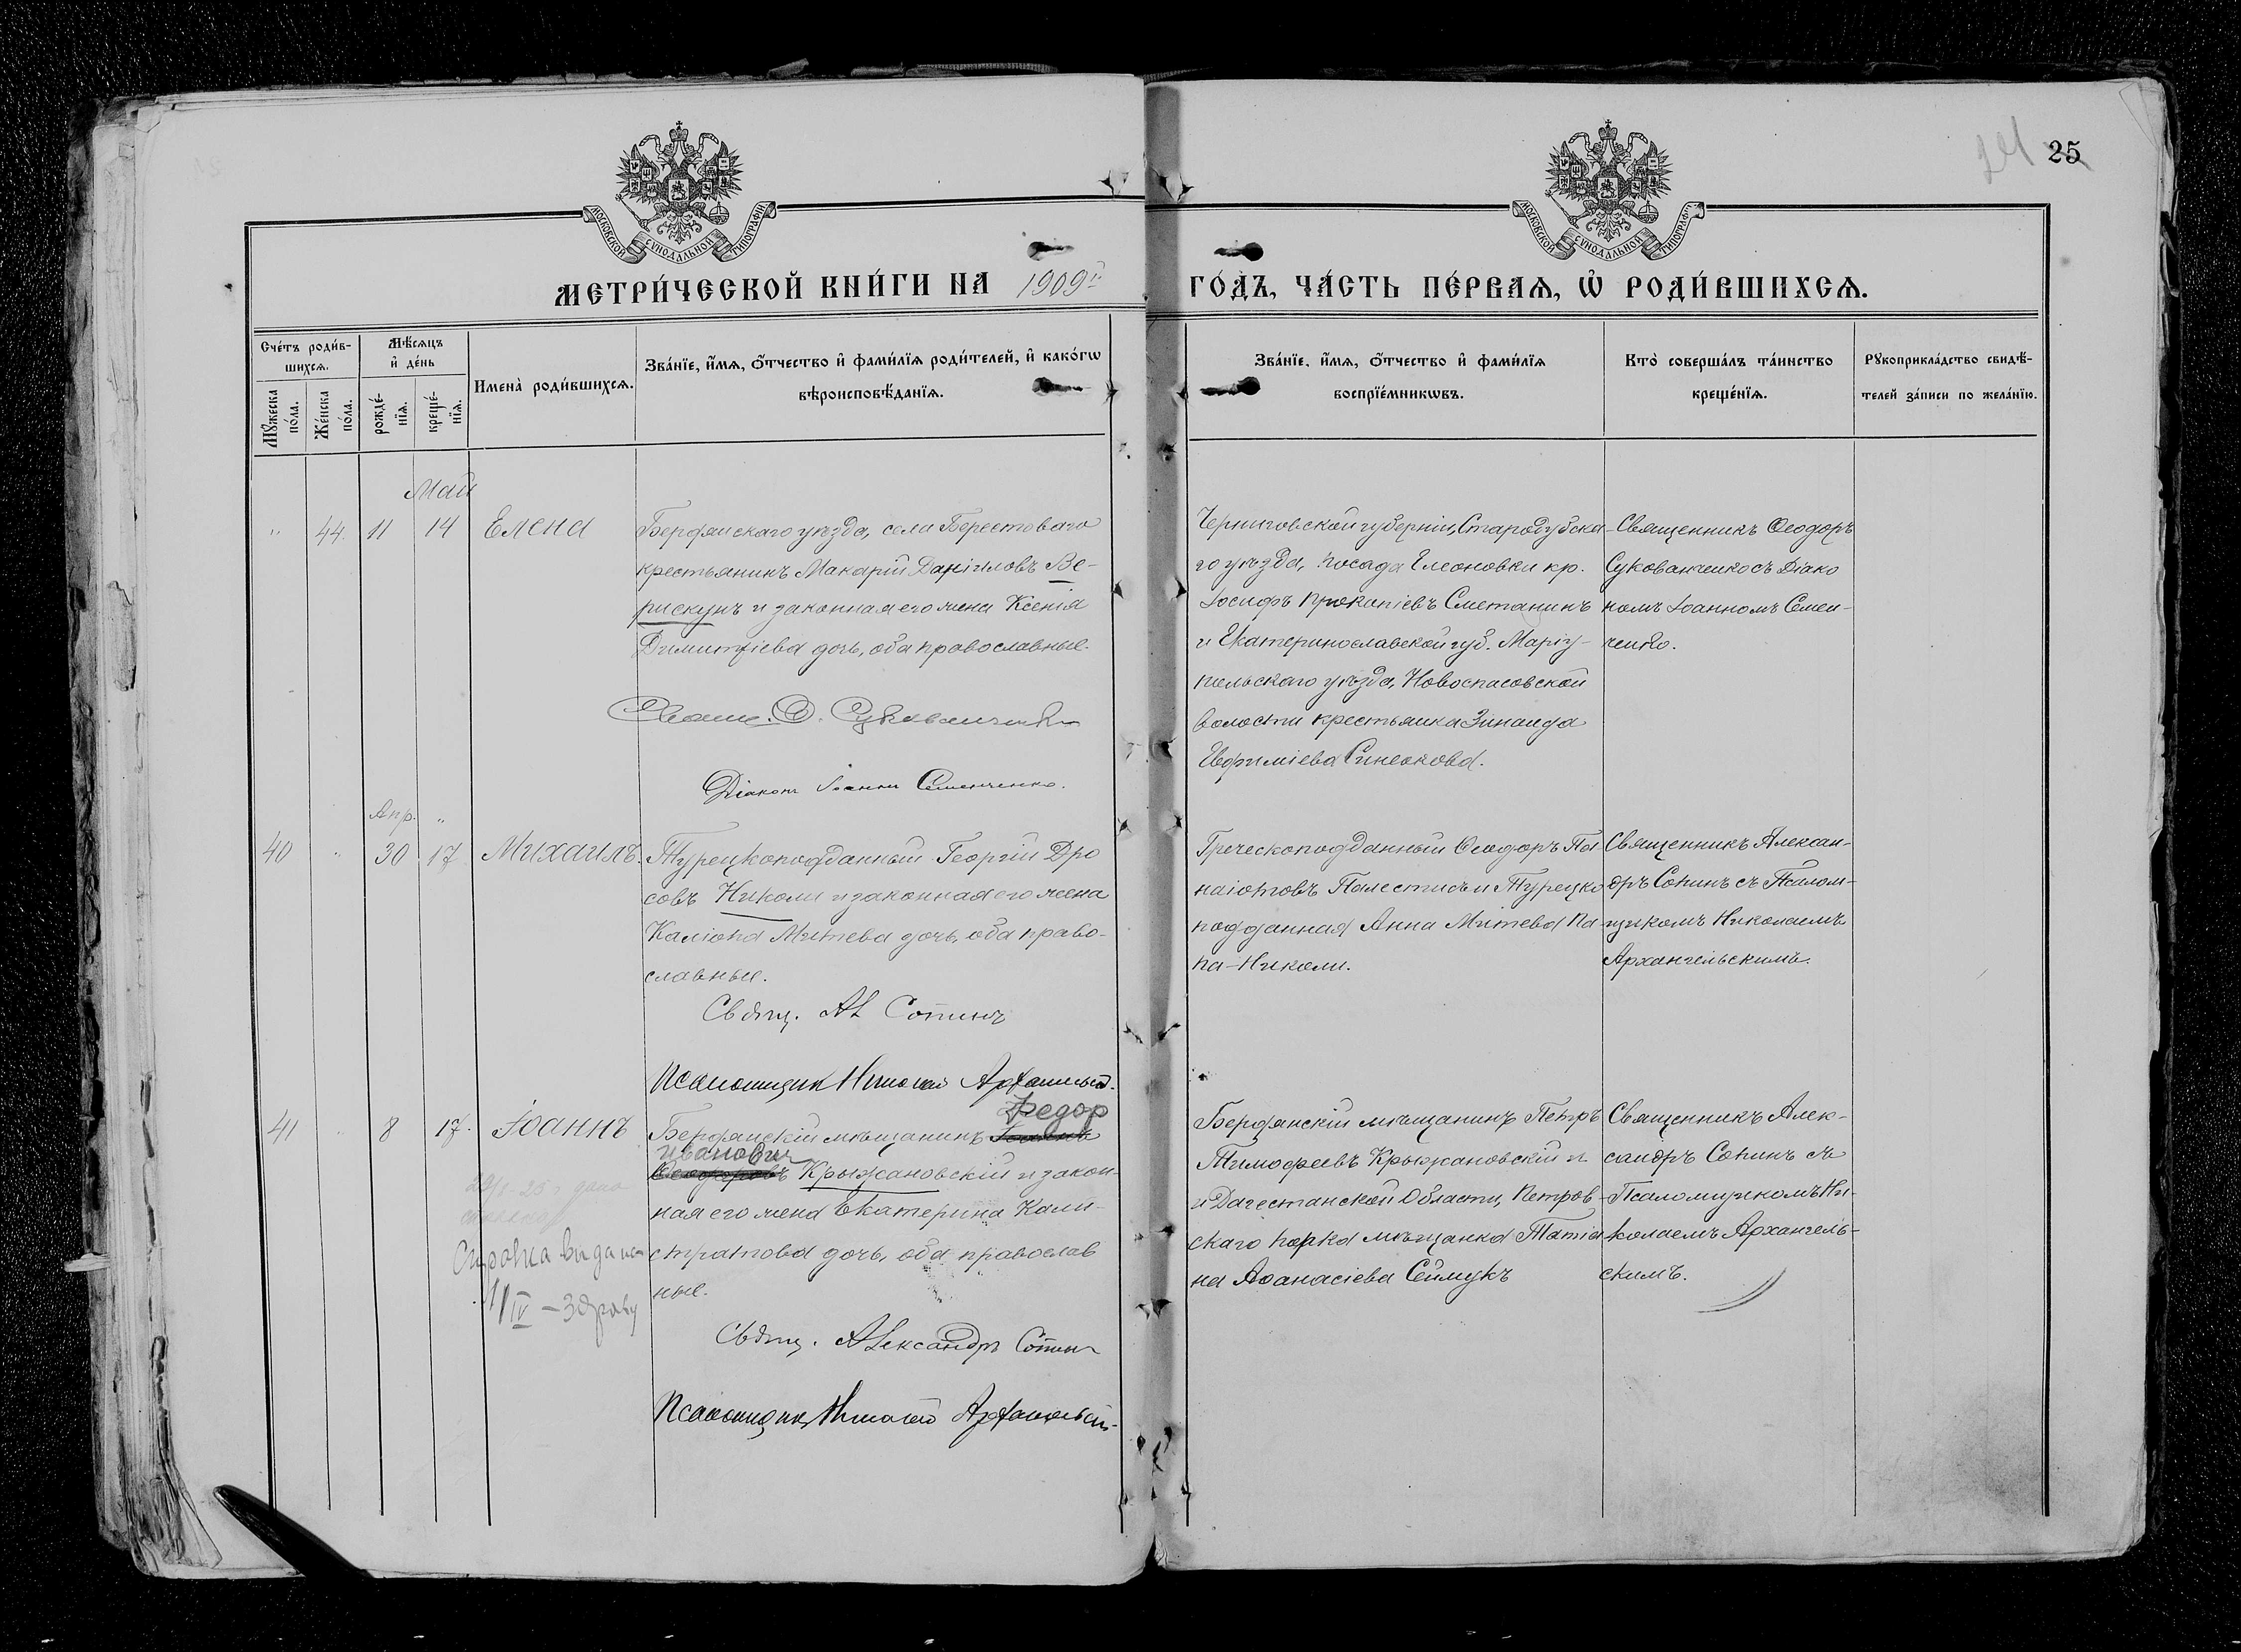 25
МОСКОВСКОЙ СУНОДАЛЬНОЙ ТИПОГРАФІИ
МОСКОВСКОЙ СУНОДАЛЬНОЙ ТИПОГРАФІИ
МЕТРИ́ЧЕСКОЙ КНИ́ГИ НА 1909
ГО́ДЪ, ЧА́СТЬ ПЕ́РВАѦ, Ѡ҆ РОДИ́ВШИХСѦ.
Сче́тъ роди́в-
шихсѧ.
Мѣ́сѧцъ
и҆ де́нь
Мꙋ́жеска
по́ла.
Же́нска
по́ла.
рожде́-
нїѧ.
креще́-
нїѧ.
Имена̀ роди́вшихсѧ.
Зва́нїе, и҆́мѧ, о҆́тчество и҆ фами́лїѧ роди́телей, и҆ како́гѡ
вѣроисповѣ́данїѧ.
Зва́нїе, и҆́мѧ, о҆́тчество и҆ фами́лїѧ
воспрїе́мникѡвъ.
Кто̀ соверша́лъ та́инство
креще́нїѧ.
Рꙋкоприкла́дство свидѣ́-
телей за́писи по жела́нїю.
Май
" 44. 11 14 Елена
Бердянскаго уѣзда, села Берестоваго
крестьянинъ Макарій Даніиловъ Ве-
рискунъ и законная его жена Ксенія
Димитріева дочь, оба православные.
Свящ. Ѳ. Сукованченко
Діаконъ Іоаннъ Семенченко.
Черниговской губерніи, Стародубска-
го уѣзда, посада Елеоновки кр.
Іосифъ Прокопіевъ Сметанинъ
и Екатеринославской губ. Маріу-
польскаго уѣзда, Новоспасовской
волости крестьянка Зинаида
Евфиміева Синеокова.
Священникъ Ѳеодоръ
Сукованченко съ Діако
номъ Іоанномъ Семен-
ченко.
Апр. "
40 " 30 17 Михаилъ.
Турецкоподданный Георгій Дро
совъ Николи и законная его жена
Каліопа Митева дочь, оба право-
славные.
Свящ. Ал Сопинъ
Псаломщик Николай Архангельск.
Греческоподданный Ѳеодоръ Па
наіотовъ Палестисъ и Турецко
подданная Анна Митева Па-
па-Николи.
Священникъ Алексан-
дръ Сопинъ съ Псалом-
щикомъ Николаемъ
Архангельскимъ.
41 8 17. Іоаннъ
Федор
Бердянскій мѣщанинъ Іоаннъ
Иванович
Ѳеодоровъ Крыжановскій и закон-
ная его жена Екатерина Кали-
стратова дочь, оба православ
ные.
Справка видана
Свящ. Александръ Сопинъ
Псаломщик Николай Архангельск.
Бердянскій мѣщанинъ Петръ
Тимофеевъ Крыжановскій и
и Дагестанской Области, Петров-
скаго порта мѣщанка Татіа
на Аѳанасіева Сеймукъ
Священникъ Алек-
сандръ Сопинъ съ
Псаломщикомъ Ни-
колаемъ Архангель-
скимъ.